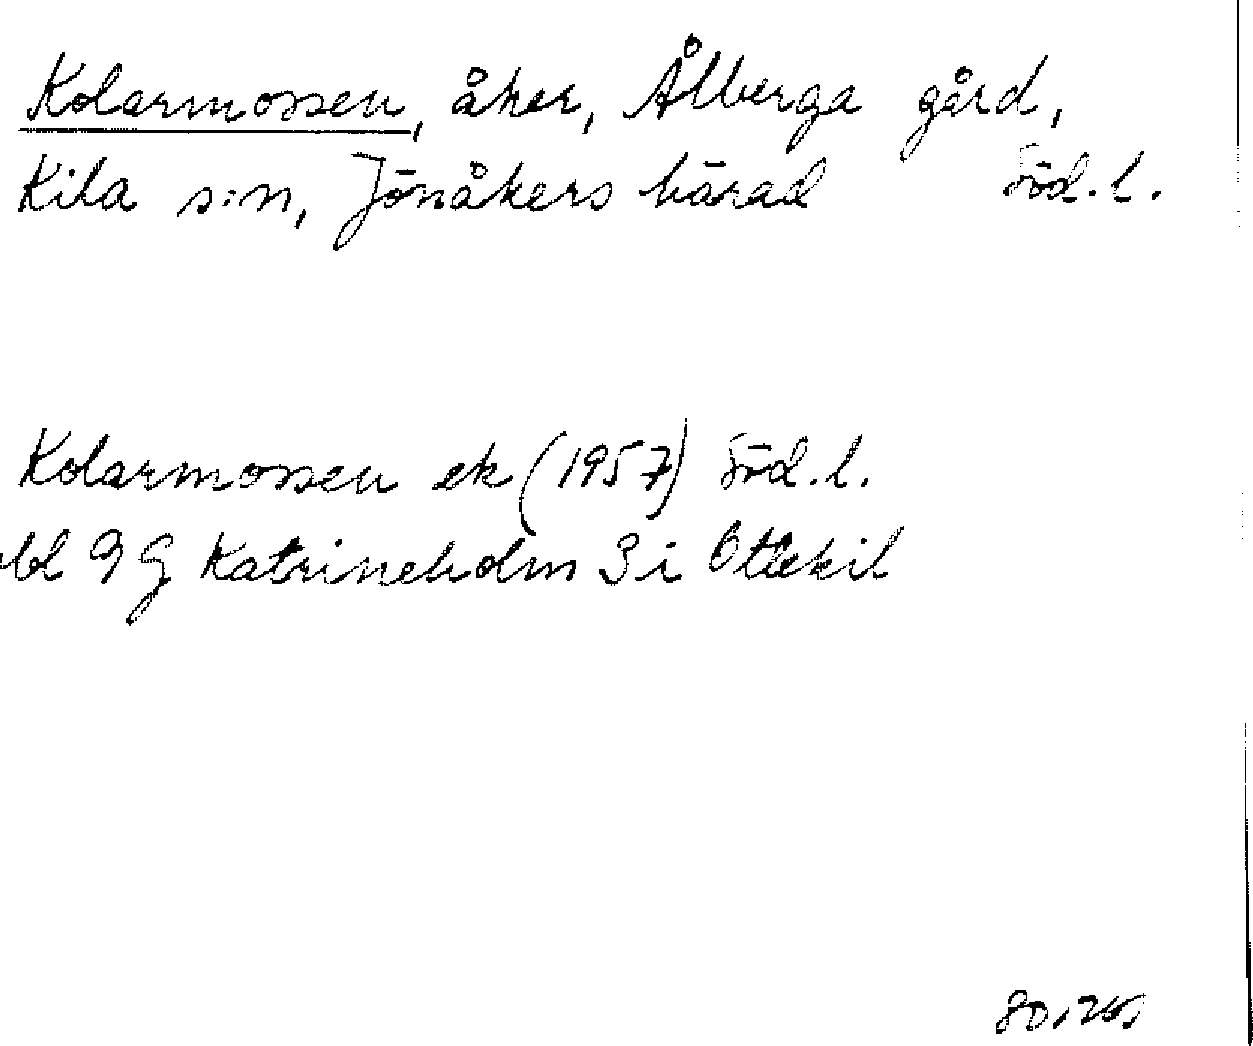 Kolarmossen, åker, Ålberga gård,
Kila s:n, Jönåkers härad Söd.l.
Kolarmossen ek (1957) Söd.l.
bl 9 G Katrineholm 3 i Ottekil